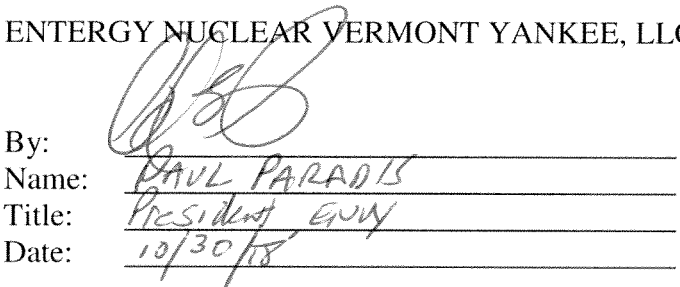 ENTERGY NUCLEAR VERMONT YANKEE, LLC
By:
Name: PAUL PARADIS
Title: President, ENVY
Date: 10/30/18